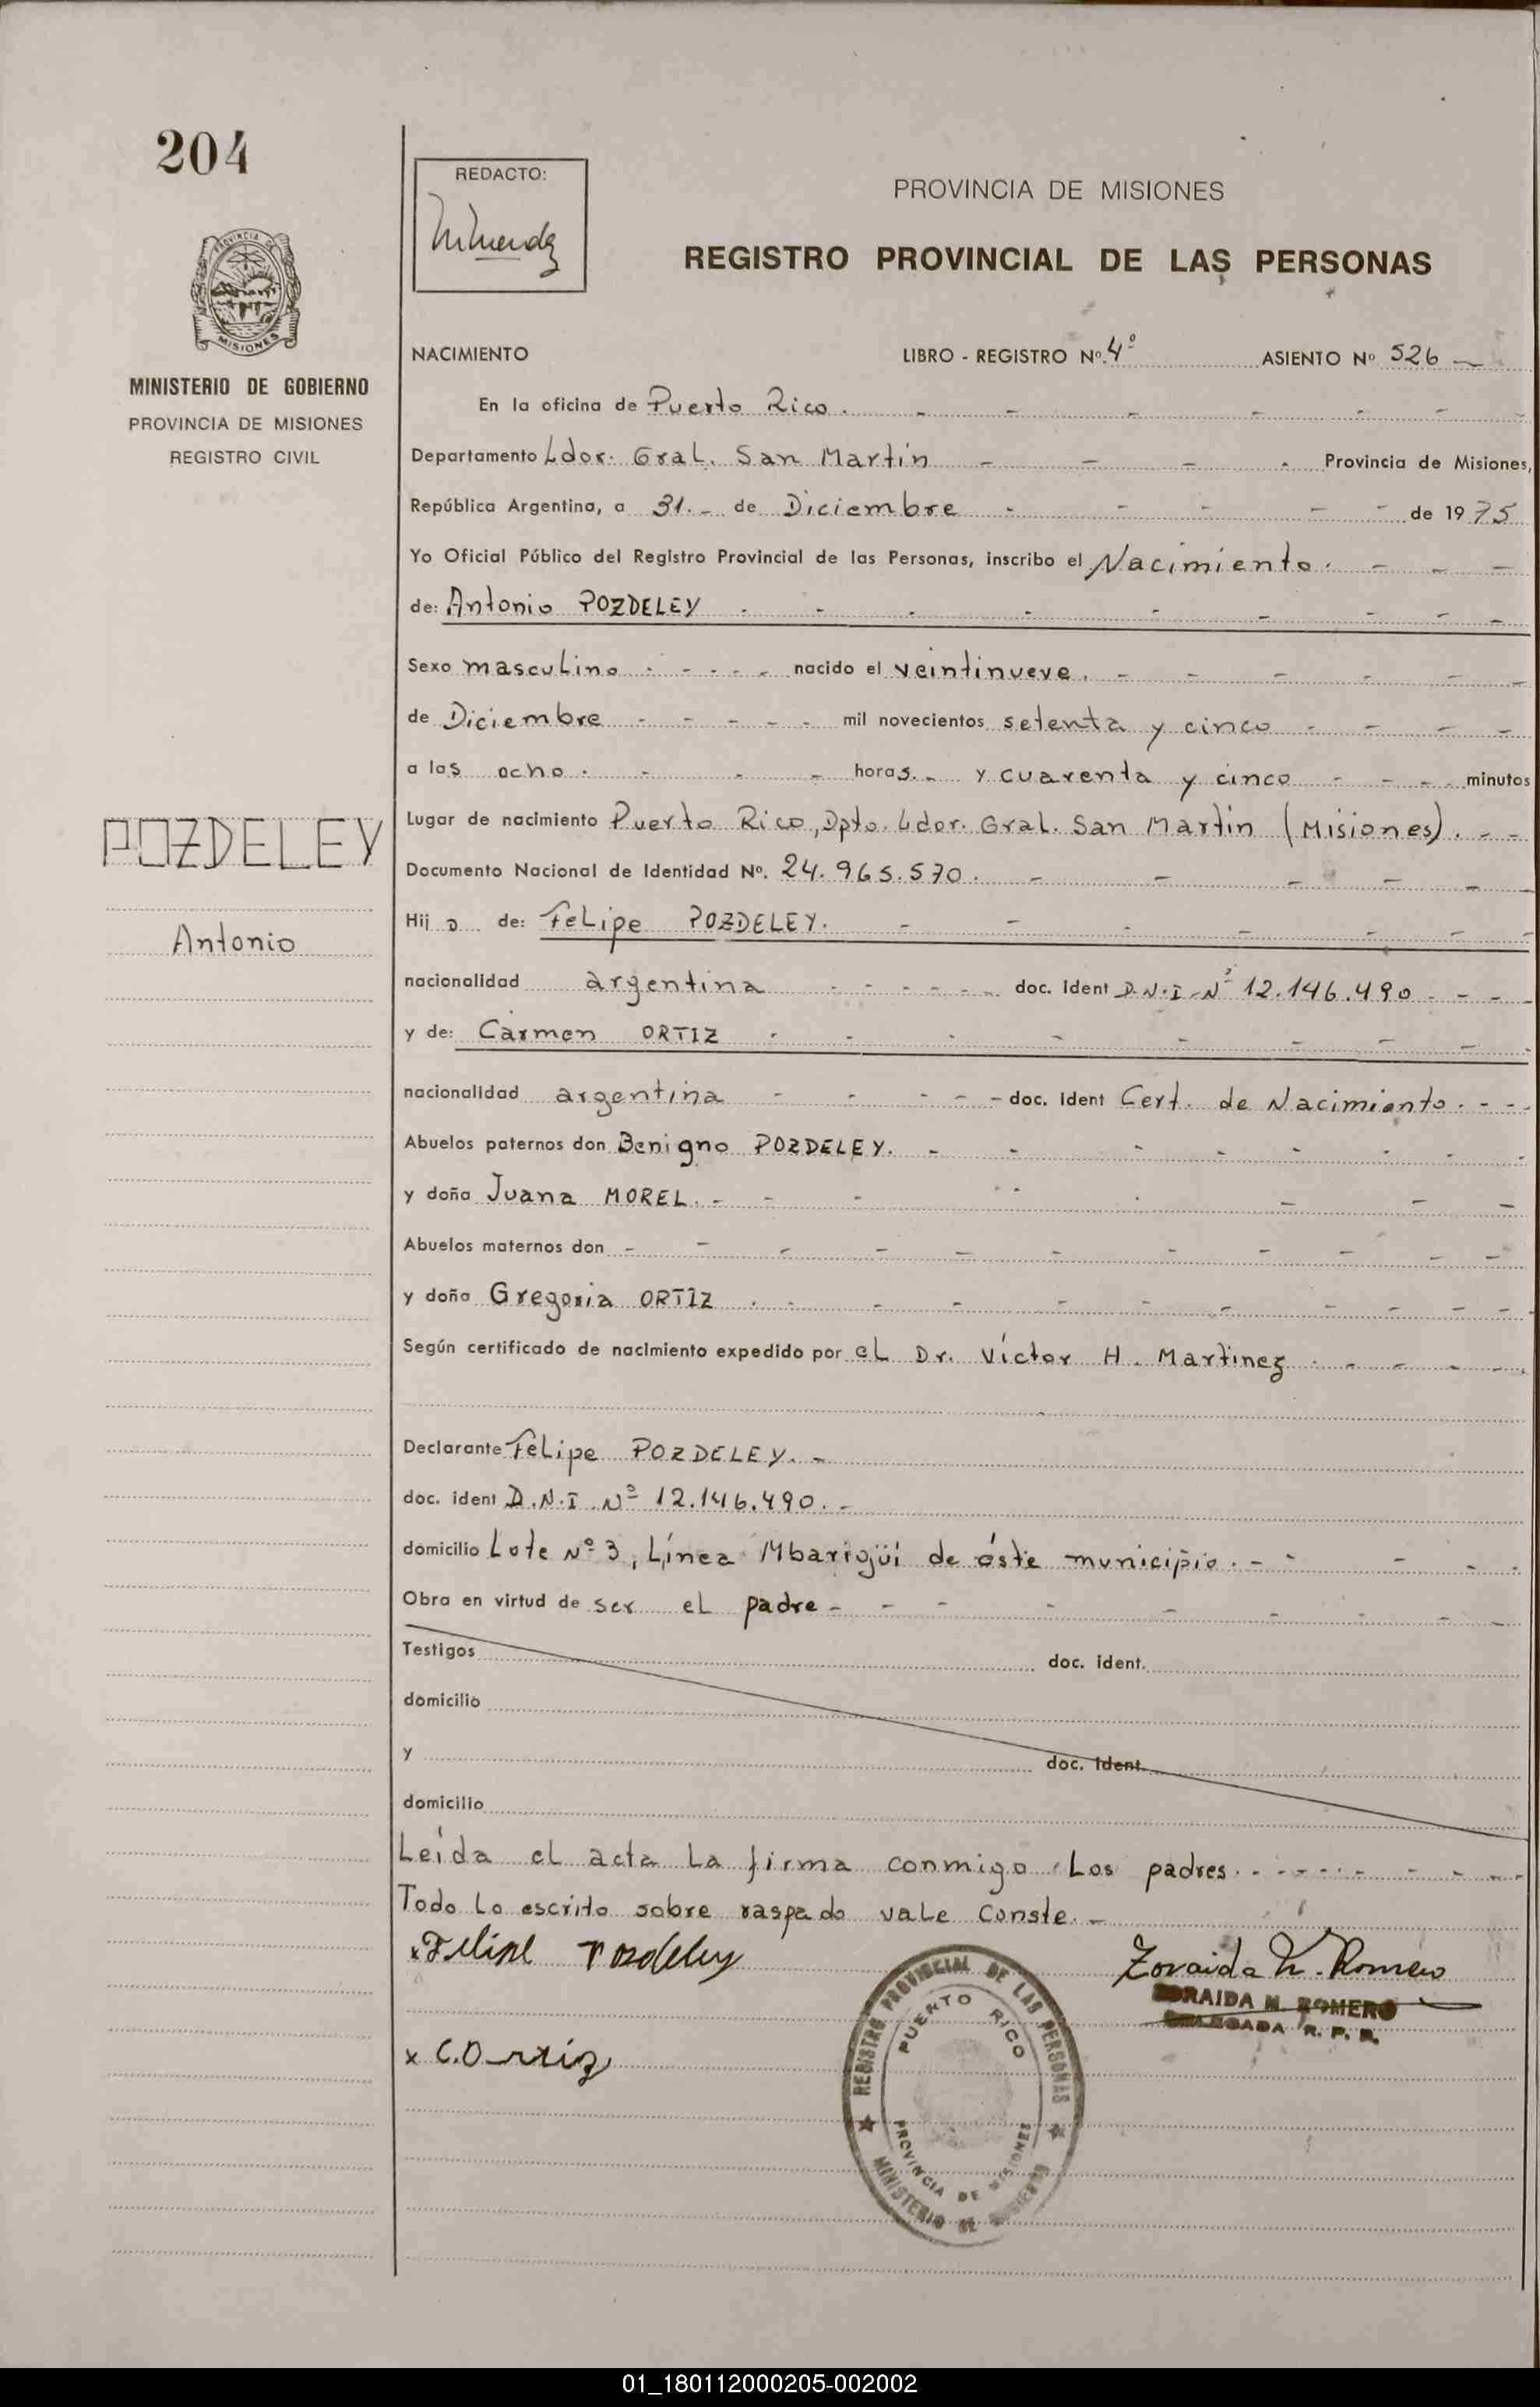 204
REDACTO:
PROVINCIA DE MISIONES
REGISTRO PROVINCIAL DE LAS PERSONAS
PROVINCIA DE
MISIONES
MINISTERIO DE GOBIERNO
PROVINCIA DE MISIONES
REGISTRO CIVIL
POZDELEY
Antonio
NACIMIENTO LIBRO - REGISTRO Nº 4º ASIENTO Nº 526
En la oficina de Puerto Rico.
Departamento Ldor. Gral. San Martin Provincia de Misiones,
República Argentina, a 31.- de Diciembre de 1975
Yo Oficial Público del Registro Provincial de las Personas, inscribo el Nacimiento.
de: Antonio POZDELEY
Sexo masculino nacido el veintinueve.
de Diciembre mil novecientos setenta y cinco
a las ocho. horas.- y cuarenta y cinco minutos
Lugar de nacimiento Puerto Rico, Dpto. Ldor. Gral. San Martin (Misiones).
Documento Nacional de Identidad Nº. 24.965.570.
Hij o de: Felipe POZDELEY.
nacionalidad argentina doc. Ident D.N.I. Nº 12.146.490
y de: Carmen ORTIZ
nacionalidad argentina doc. Ident Cert. de Nacimiento.
Abuelos paternos don Benigno POZDELEY.
y doña Juana MOREL.
Abuelos maternos don
y doña Gregoria ORTIZ
Según certificado de nacimiento expedido por el Dr. Víctor H. Martinez
Declarante Felipe POZDELEY.-
doc. ident D.N.I. Nº 12.146.490.-
domicilio Lote Nº 3, Línea Mbarigüí de éste municipio.
Obra en virtud de ser el padre
Testigos doc. ident.
domicilio
y doc. Ident.
domicilio
Leída el acta la firma conmigo Los padres.
Todo lo escrito sobre raspado vale Conste.-
x Felipe Pozdeley
Zoraida N. Romero
ZORAIDA N. ROMERO
DELEGADA R. P. P.
x C. Ortiz
REGISTRO PROVINCIAL DE LAS PERSONAS
PUERTO RICO
PROVINCIA DE MISIONES
MINISTERIO DE GOBIERNO
01_180112000205-002002